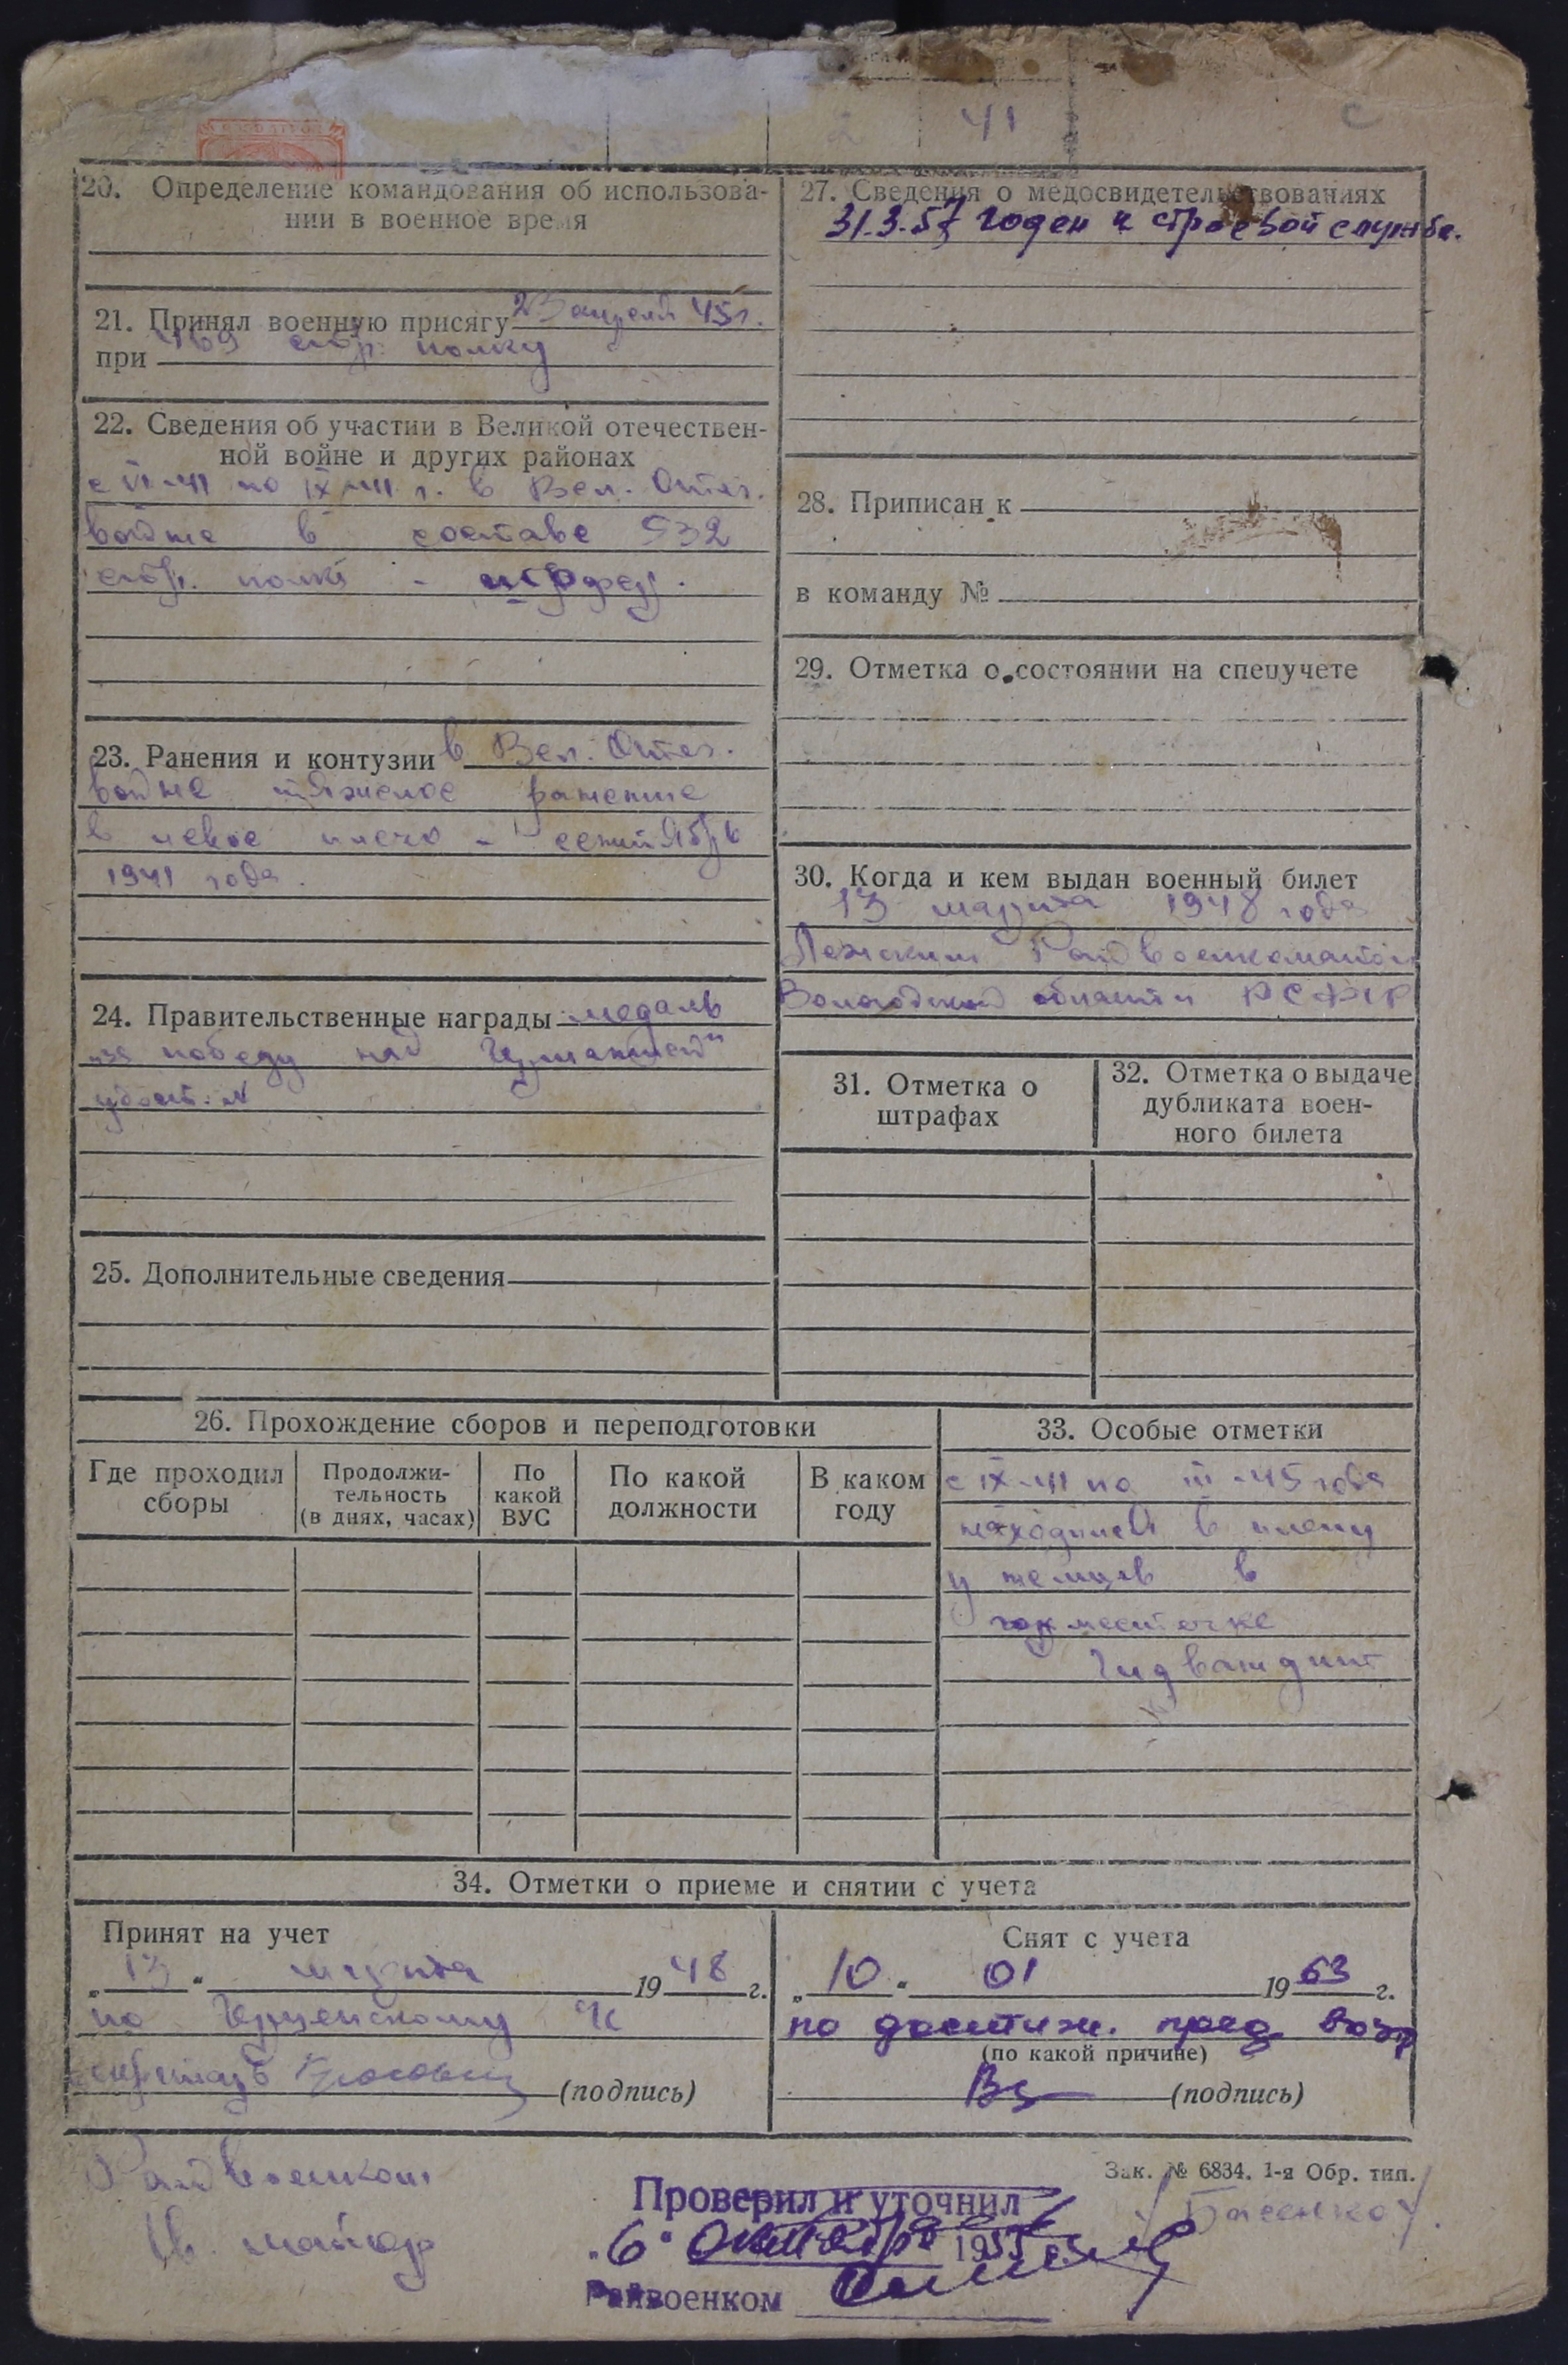 41
20. Определение командования об использова-
нии в военное время
21. Принял военную присягу 23 апреля 45 г.
при 469 стр. полку
22. Сведения об участии в Великой отечествен-
ной войне и других районах
с VI-41 по IX-41 г. в Вел. Отеч.
войне в составе 532
стр. полка -
23. Ранения и контузии в Вел. Отеч.
войне тяжелое ранение
в левое плечо - сентябрь
1941 года.
24. Правительственные награды медаль
"за победу над Германией"
удост. N
25. Дополнительные сведения
26. Прохождение сборов и переподготовки
Где проходил
сборы
Продолжи-
тельность
(в днях, часах)
По
какой
ВУС
По какой
должности
В каком
году
27. Сведения о медосвидетельствованиях
31.3.57 годен к строевой службе.
28. Приписан к
в команду №
29. Отметка о состоянии на спецучете
30. Когда и кем выдан военный билет
13 марта 1948 года
Лежским Райвоенкоматом
Вологодской области РСФСР
31. Отметка о
штрафах
32. Отметка о выдаче
дубликата воен-
ного билета
33. Особые отметки
с IX-41 по III-45 года
находился в плену
у немцев в
местечке
34. Отметки о приеме и снятии с учета
Принят на учет
„13“ марта 1948 г.
по
(подпись)
Снят с учета
„10“ 01 1963 г.
по достиж. пред. возр
(по какой причине)
(подпись)
Зак. № 6834. 1-я Обр. тип.
Райвоенком
гв. майор
/Басенков/.
Проверил и уточнил
„6“ октября 1955 г.
Райвоенком